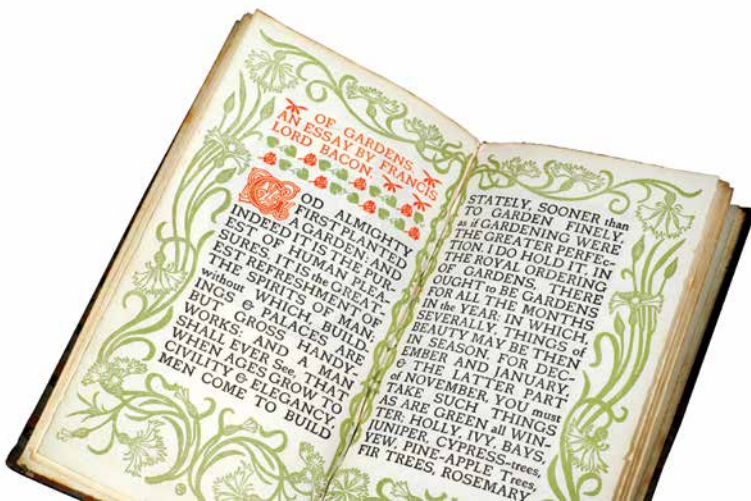 OF GARDENS.
AN ESSAY BY FRANCIS
LORD BACON.
GOD ALMIGHTY
FIRST PLANTED
A GARDEN: AND
INDEED IT IS THE PUR-
EST OF HUMAN PLEA-
SURES. IT IS the GREAT-
EST REFRESHMENT OF
THE SPIRITS OF MAN:
without WHICH, BUILD-
INGS & PALACES ARE
BUT GROSS HANDY-
WORKS: AND A MAN
SHALL EVER See, THAT
WHEN AGES GROW TO
CIVILITY & ELEGANCY,
MEN COME TO BUILD
STATELY, SOONER than
TO GARDEN FINELY,
as if GARDENING WERE
THE GREATER PERFEC-
TION. I DO HOLD IT, IN
THE ROYAL ORDERING
OF GARDENS, THERE
OUGHT to BE GARDENS
FOR ALL THE MONTHS
in the YEAR: IN WHICH,
SEVERALLY, THINGS of
BEAUTY MAY BE THEN
IN SEASON. FOR DEC-
EMBER AND JANUARY,
& THE LATTER PART
of NOVEMBER, YOU must
TAKE SUCH THINGS
AS ARE GREEN all WIN-
TER: HOLLY, IVY, BAYS,
JUNIPER, CYPRESS-trees,
YEW, PINE-APPLE Trees,
FIR TREES, ROSEMARY,